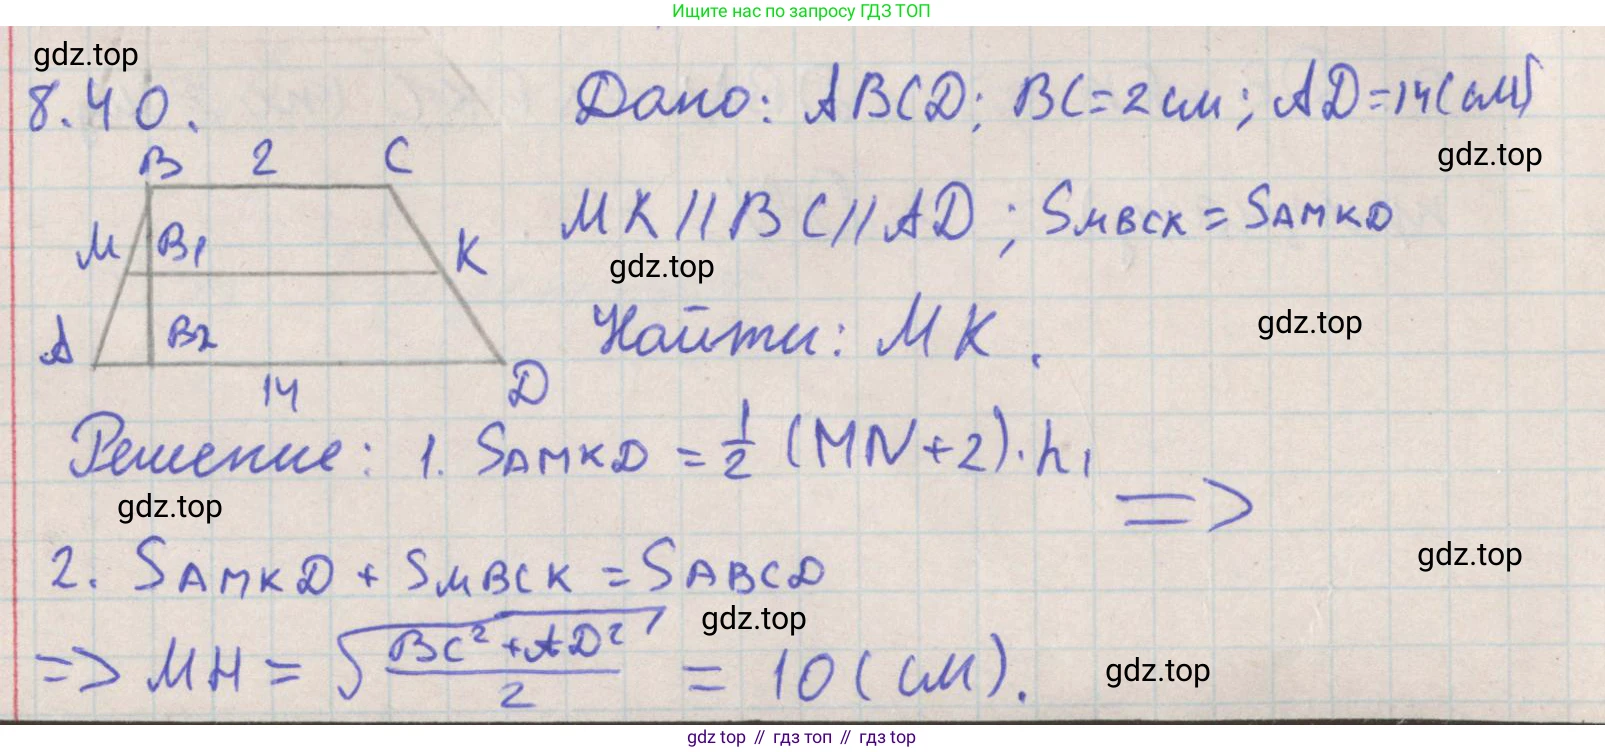 Ищите нас по запросу ГДЗ ТОП
gdz.top
8.40.
Дано: ABCD; BC=2см; AD=14(см)
gdz.top
B 2 C
MK//BC//AD; SMBCK = SAMKD
M B1 K
gdz.top
Найти: MK.
gdz.top
A B2
14 D
Решение: 1. SAMKD = 1/2 (MN+2)·h1
gdz.top
=>
2. SAMKD + SMBCK = SABCD
gdz.top
gdz.top
=> MH = √((BC²+AD²)/2) = 10(см).
gdz.top
gdz top // гдз топ // гдз top